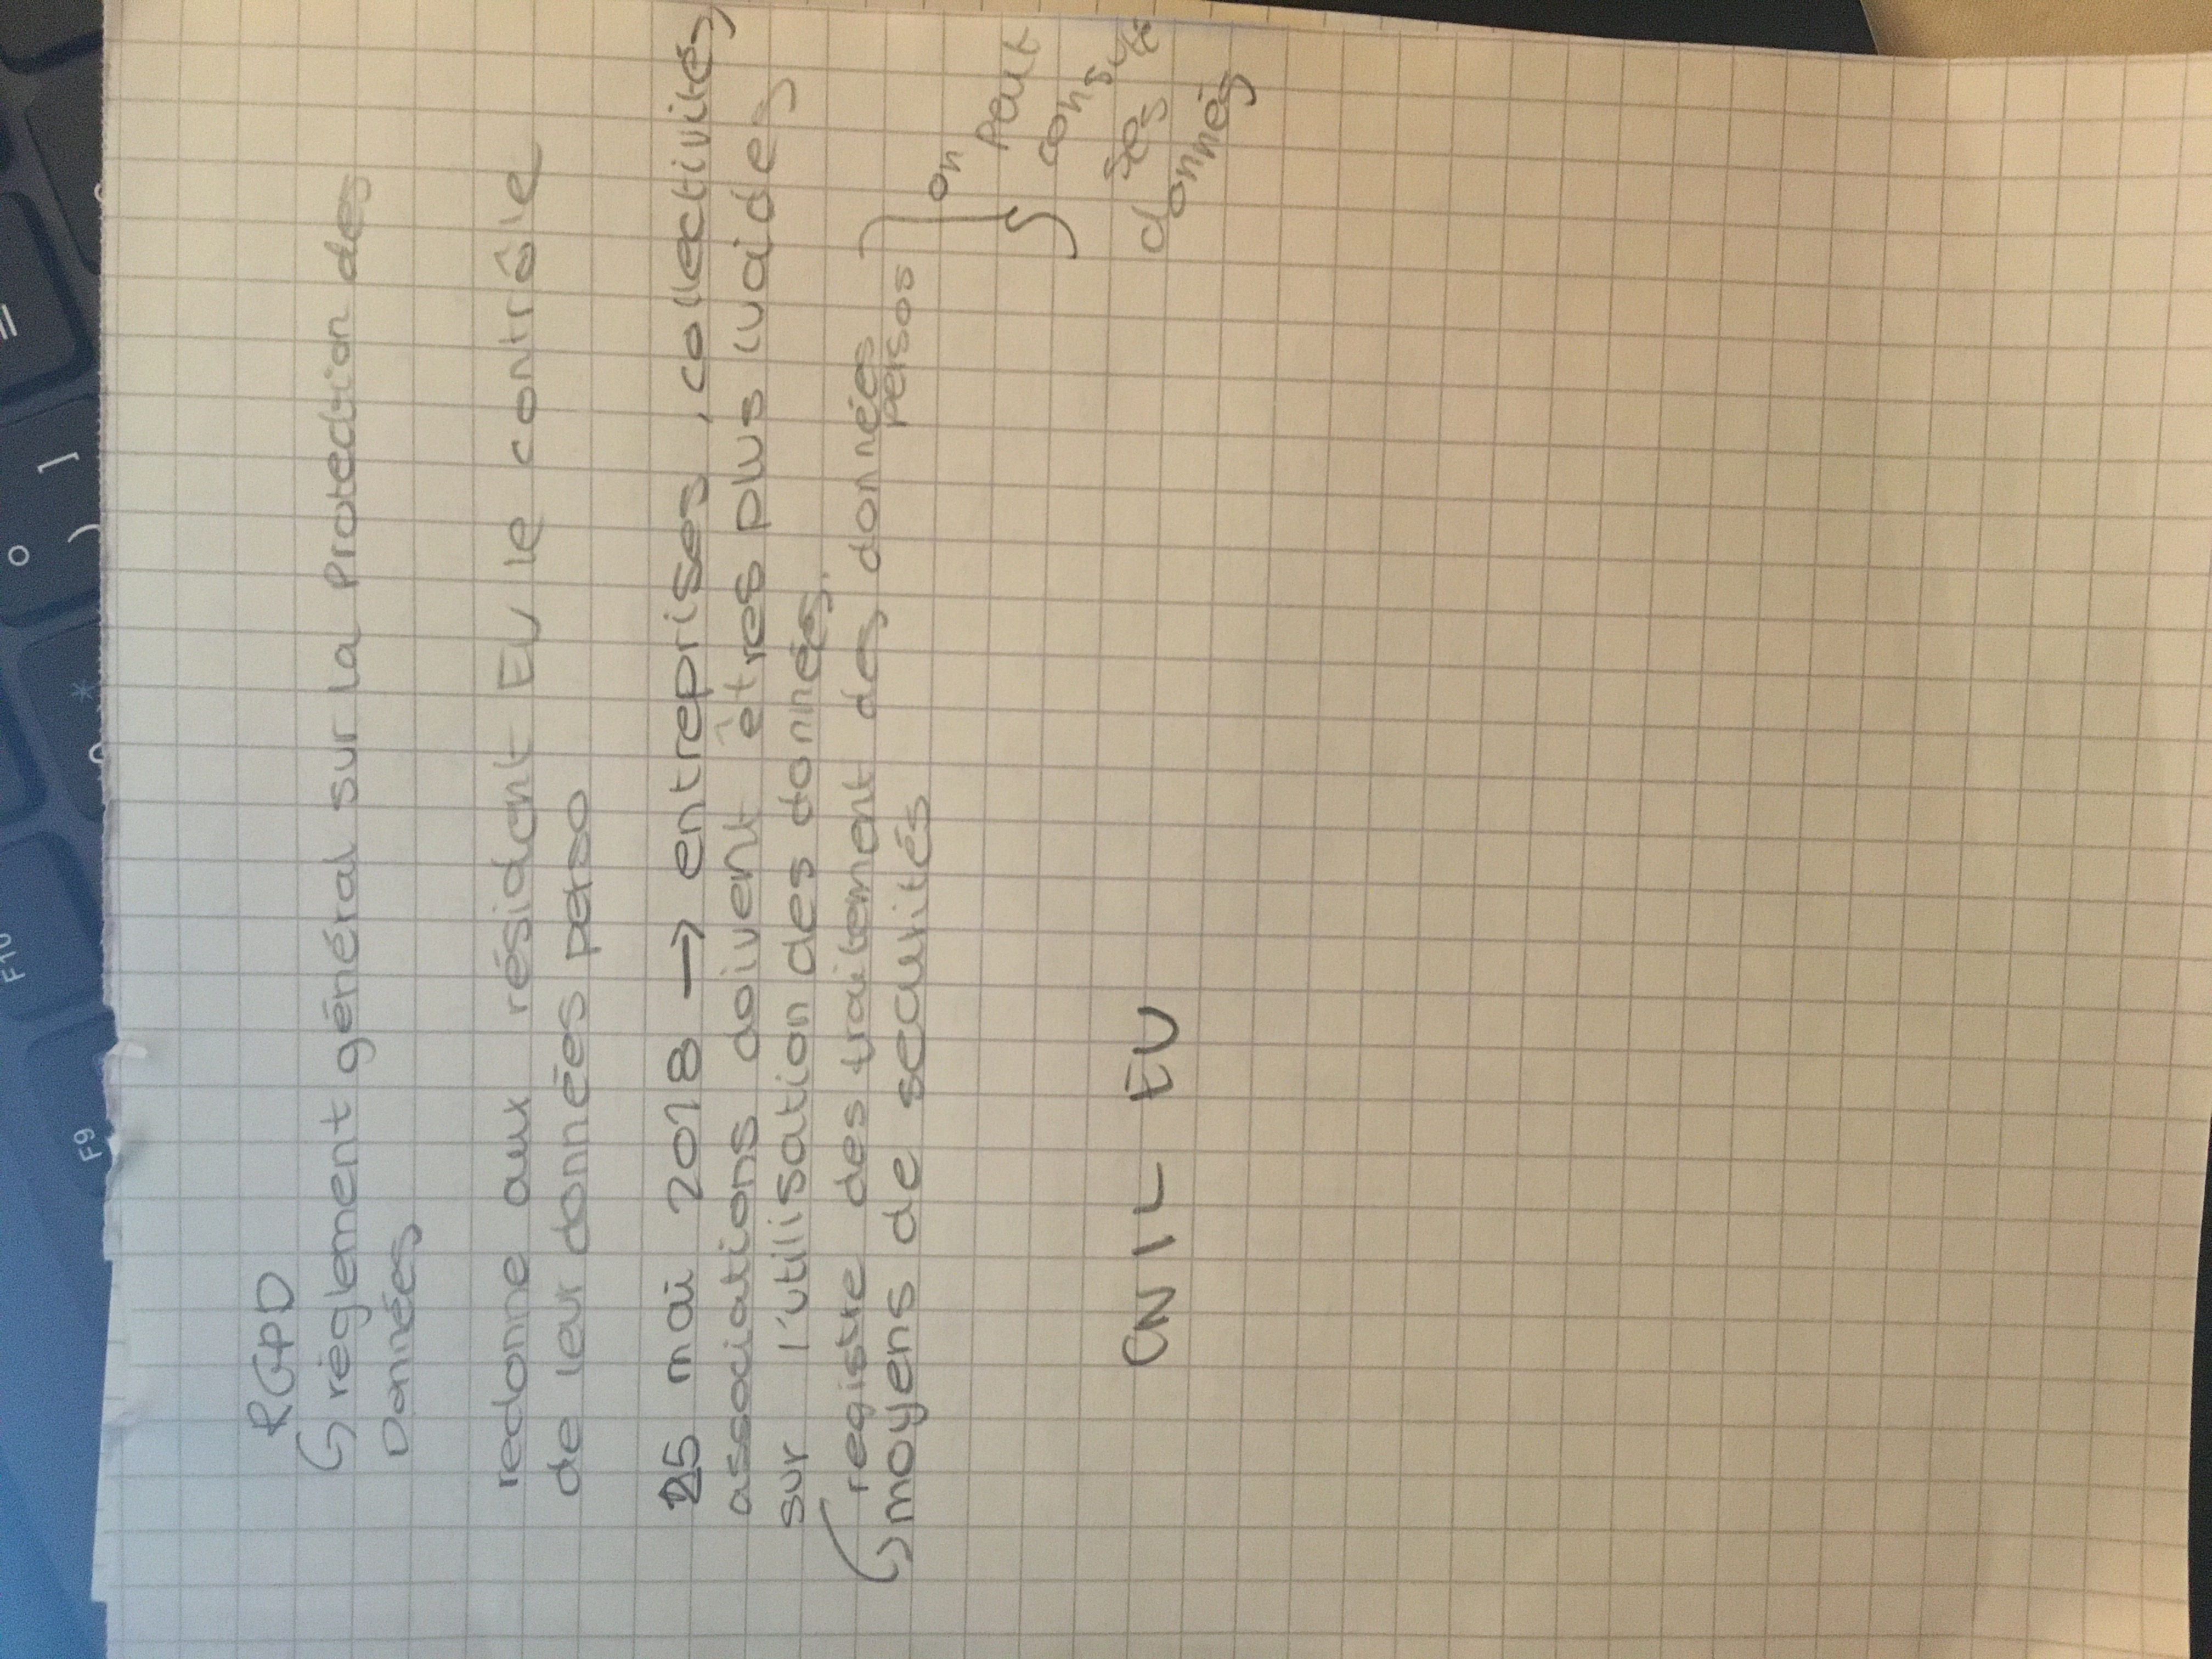 F9
F10
*
)
]
=
RGPD
règlement général sur la Protection des
Données
redonne aux résident EU le contrôle
de leur données perso
25 mai 2018 → entreprises, collectivités,
associations doivent êtres plus lucides
sur l'utilisation des données.
registre des traitement des données
persos
moyens de securités
on
peut
consulté
ses
donnés
CNIL EU